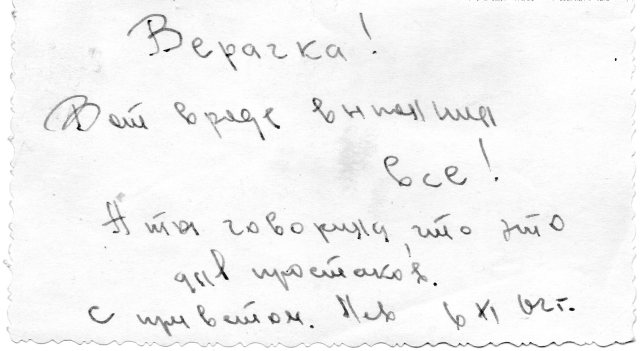 Верачка!
Вот вроде выполнил
все!
А ты говорила что это
для простаков.
С приветом. Лев 6 XI 62г.